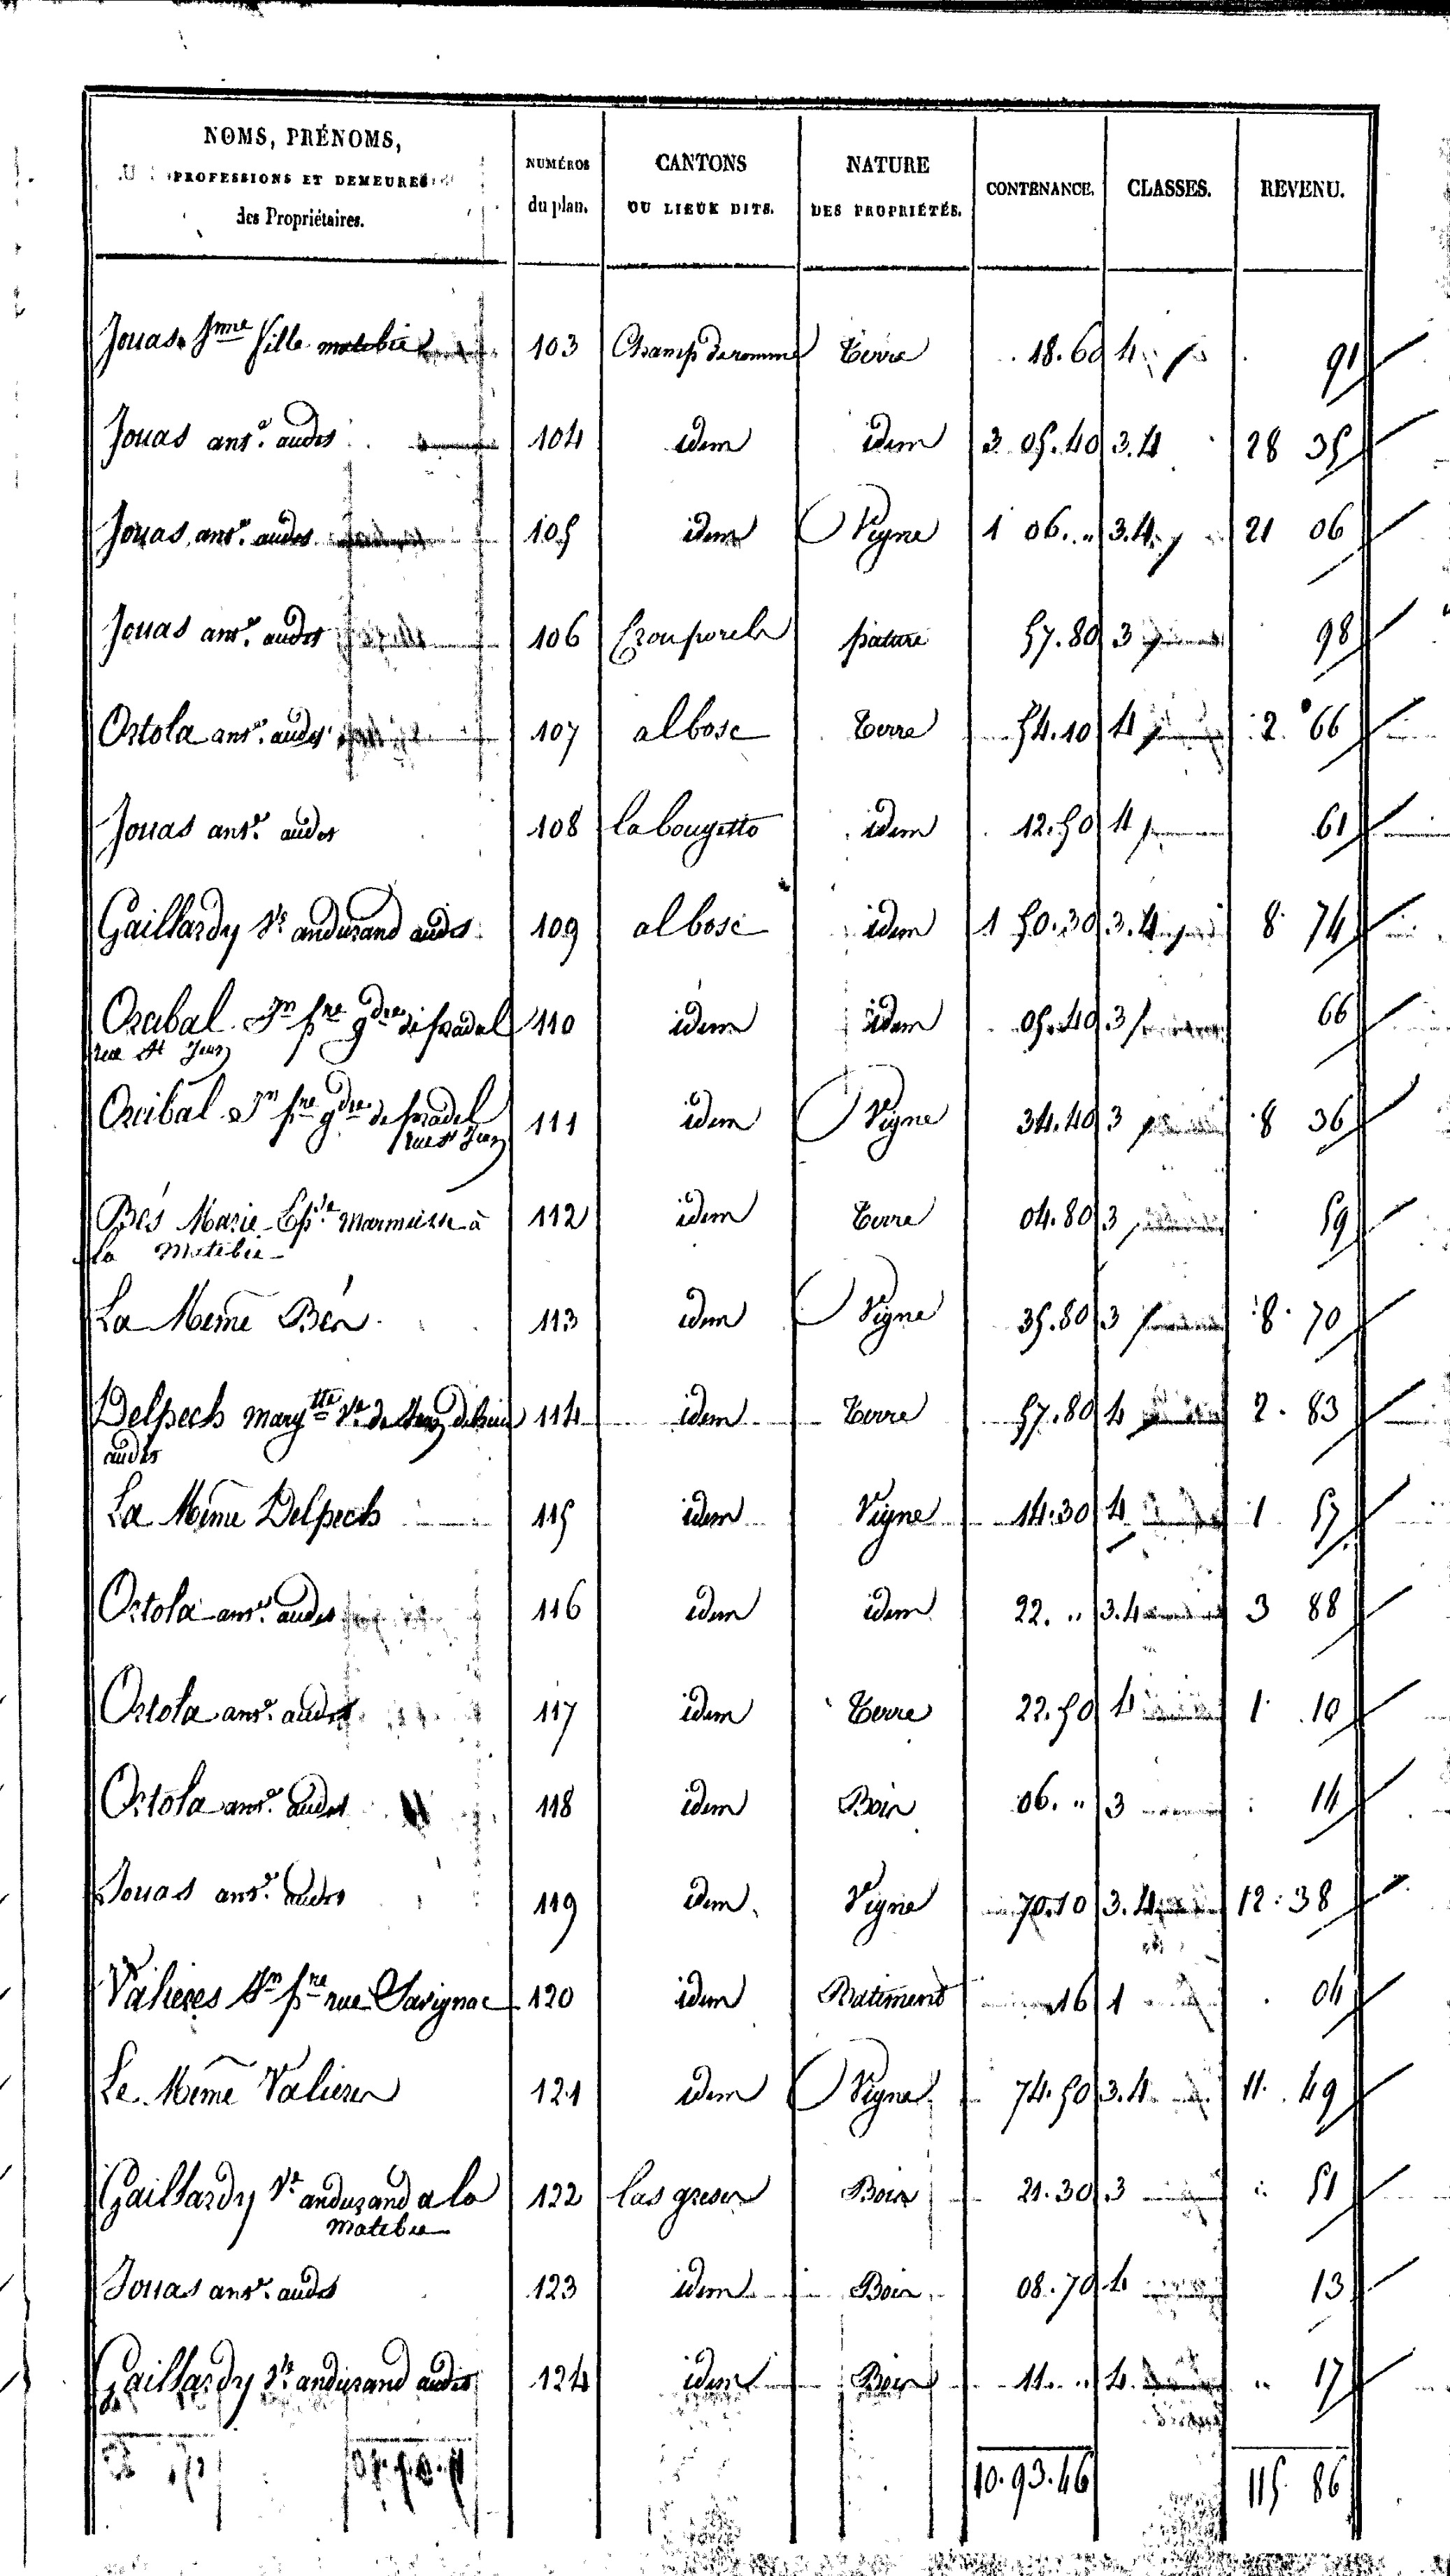 NOMS, PRÉNOMS, PROFESSIONS ET DEMEURES des Propriétaires. NUMÉROS du plan. CANTONS OU LIEUX DITS. NATURE DES PROPRIÉTÉS. CONTENANCE. CLASSES. REVENU.
Jouas Jme fille 103 Champ de romme Terre 18.60 4 91
Jouas ants. audit 104 idem idem 3 05.40 3.4 28 35
Jouas ants. audit 105 idem Vigne 1 06. " 3.4 21 06
Jouas ants. audit 106 pature 57.80 3 98
Ortola ants. audit 107 al bosc Terre 54.10 4 2 66
Jouas ants. audit 108 la bougetto idem 12.50 4 61
Gaillardy Ve andurand audit 109 al bosc idem 1 50.30 3.4 8 74
Orcibal Jn pre gdre de pradel 110 idem idem 05.40 3 66
rue St Jean
Orcibal Jn pre gdre de pradel 111 idem Vigne 34.40 3 8 36
rue St Jean
Bés Marie Epse Marmiesse à 112 idem Terre 04.80 3 59
la Matebie
La Même Bés 113 idem Vigne 35.80 3 8 70
Delpech margtte Ve de 114 idem Terre 57.80 4 2 83
audit
La Même Delpech 115 idem Vigne 14.30 4 1 57
Ortola ants. audit 116 idem idem 22. " 3.4 3 88
Ortola ants. audit 117 idem Terre 22.50 4 1 10
Ortola ants. audit 118 idem Bois 06. " 3 14
Jouas ants. audit 119 idem Vigne 70.10 3.4 12 38
Valieres An pre rue Savignac 120 idem Batiment 16 1 04
Le Même Valieres 121 idem Vigne 74.50 3.4 11 49
Gaillardy Ve andurand a la 122 las greses Bois 21.30 3 51
Matebie
Jouas ants. audit 123 idem Bois 08.70 4 13
Gaillardy Ve andurand audit 124 idem Bois 11. " 4 " 17
10.93.46 115 86